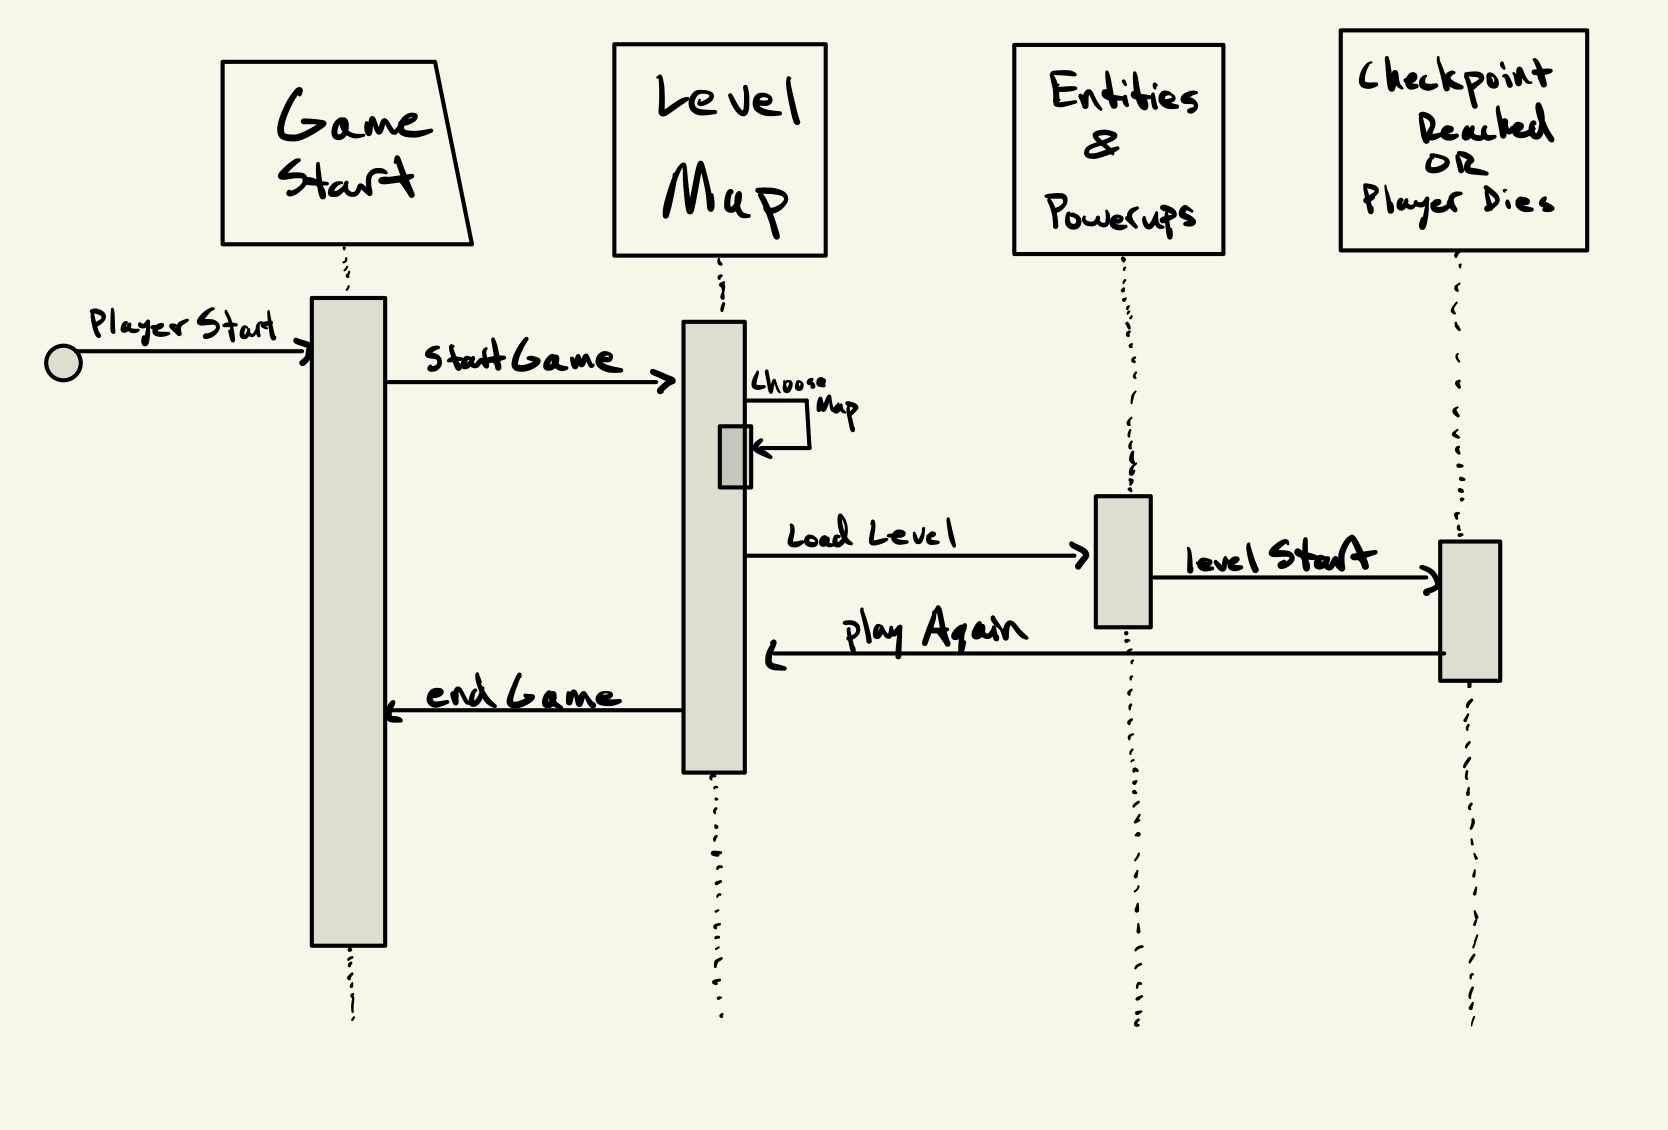 Game
Start
Level
Map
Entities
&
Powerups
Checkpoint
Reached
OR
Player Dies
Player Start
start Game
Choose
Map
Load Level
level Start
play Again
end Game